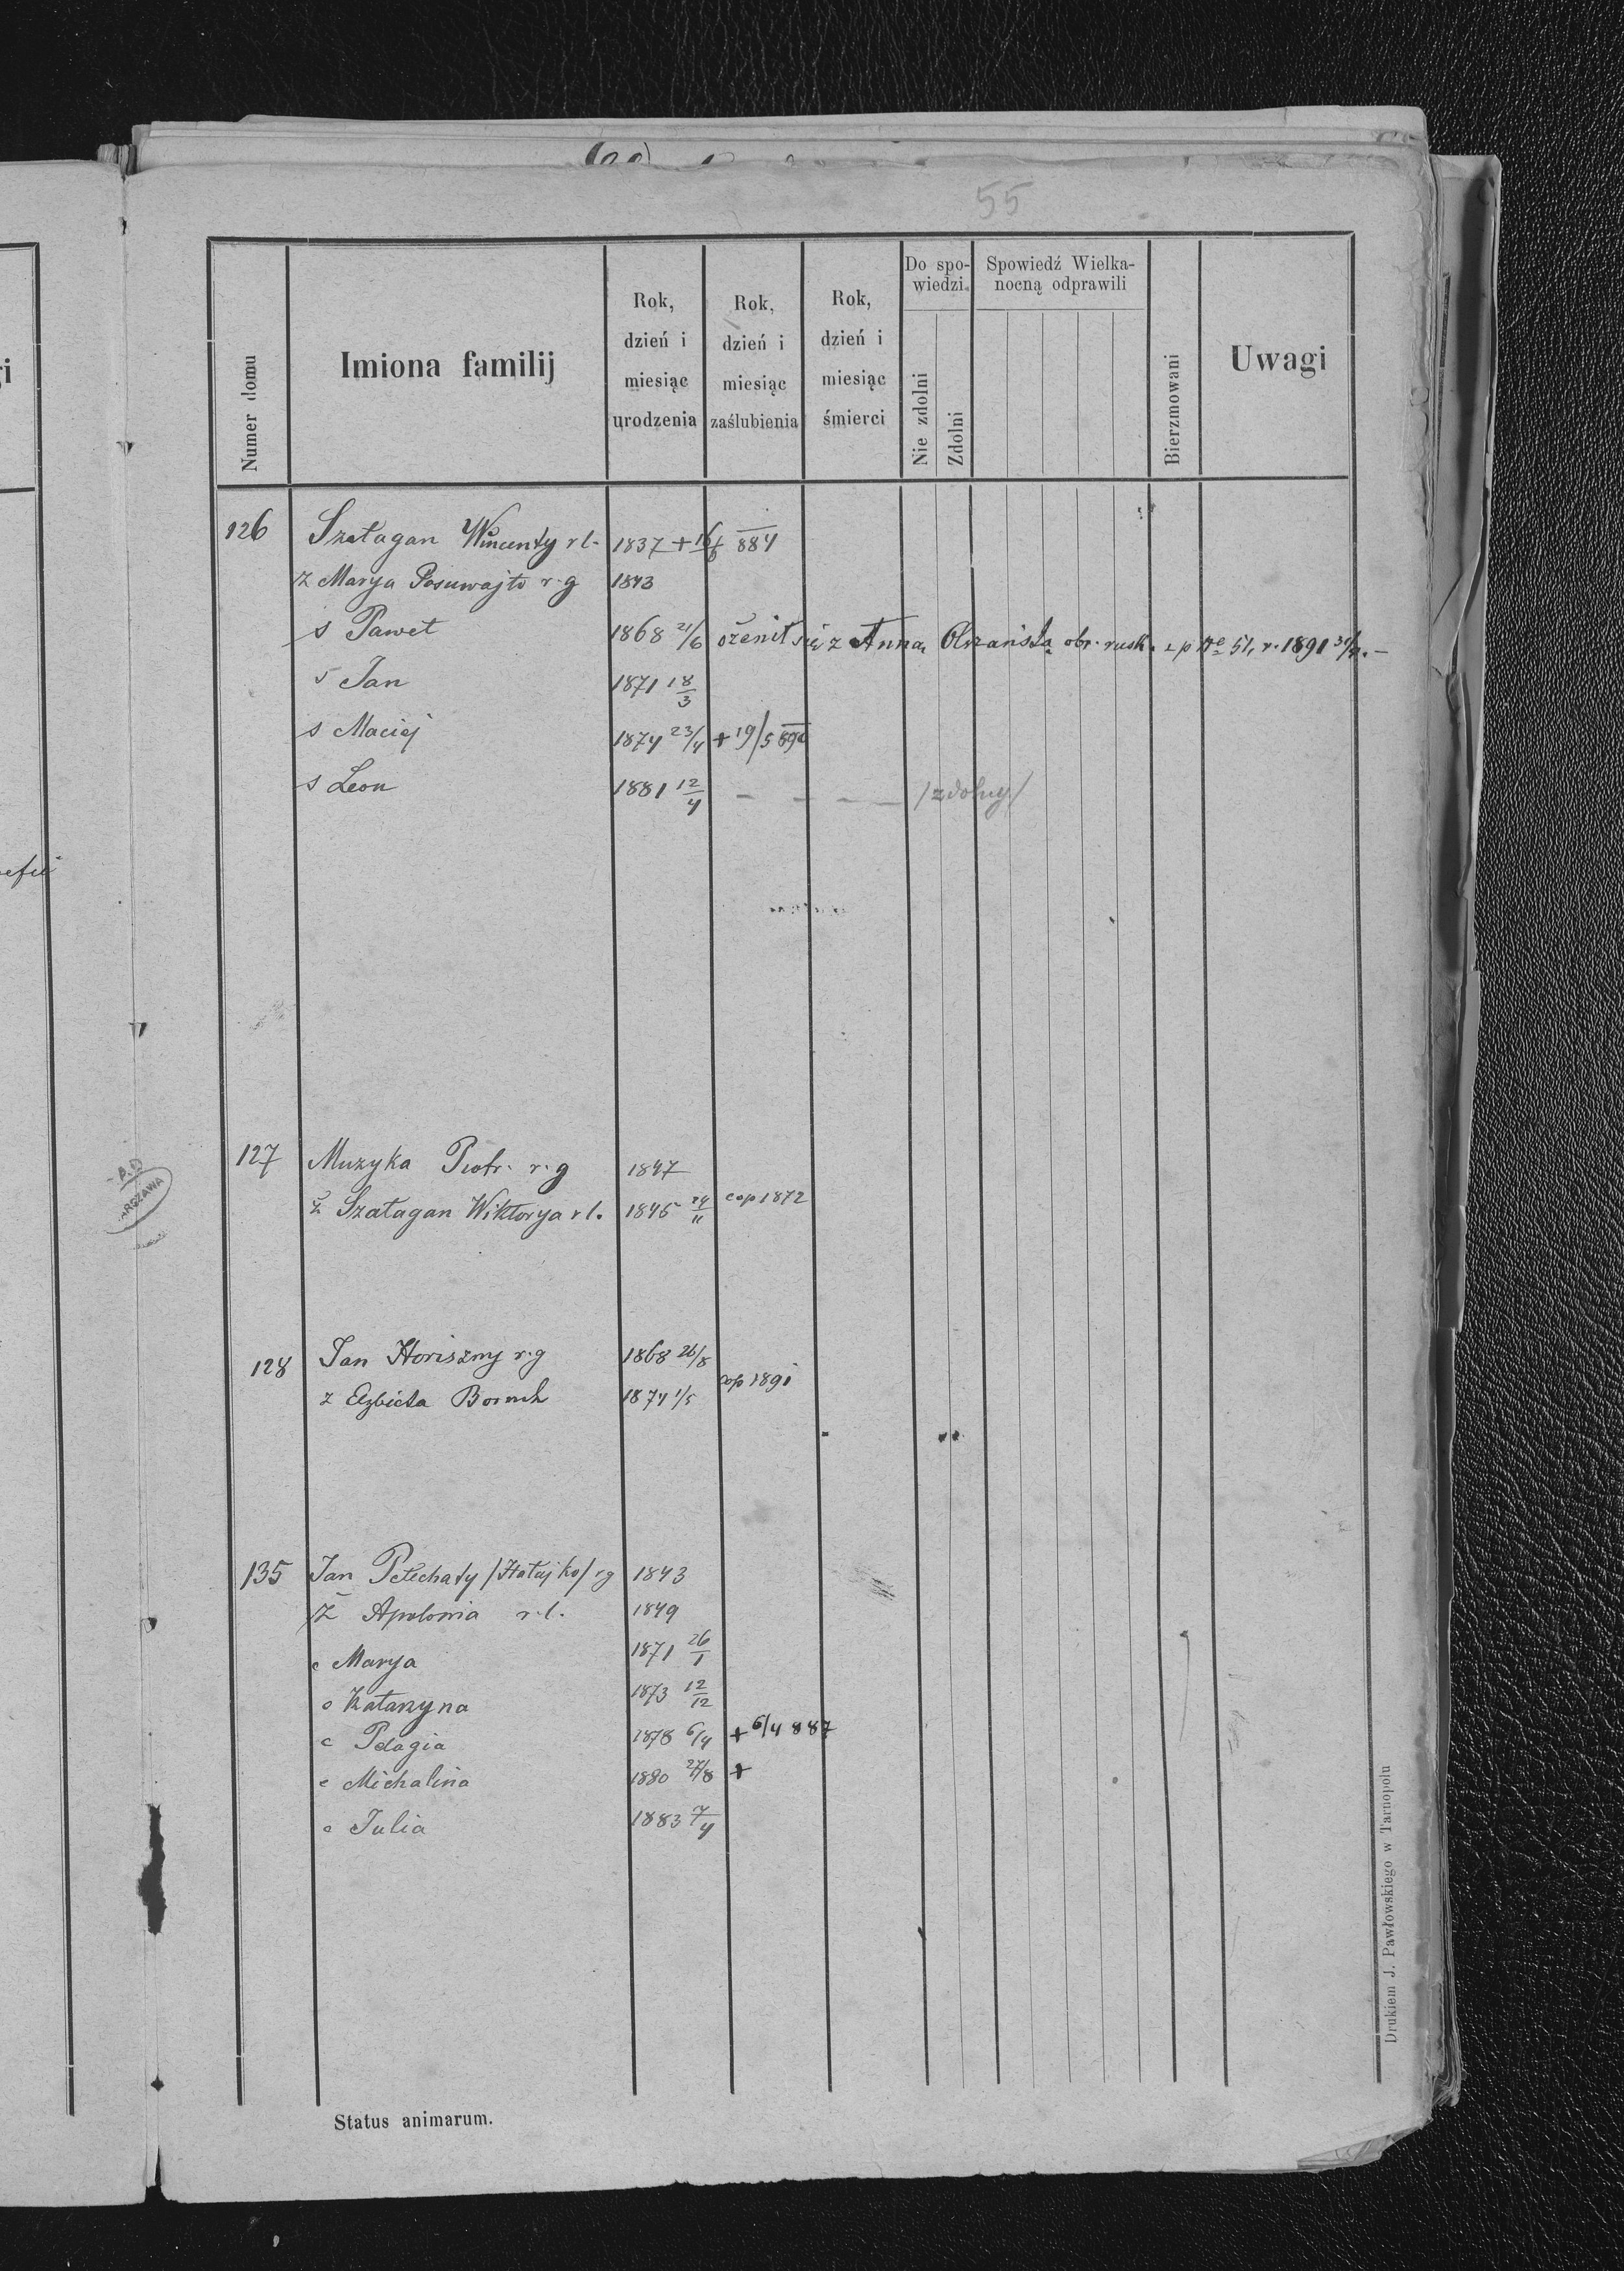 55
Numer domu
Imiona familij
Rok, dzień i miesiąc urodzenia
Rok, dzień i miesiąc zaślubienia
Rok, dzień i miesiąc śmierci
Do spowiedzi.
Nie zdolni
Zdolni
Spowiedź Wielkanocną odprawili
Bierzmowani
Uwagi
126 Szałagan Wincenty r l. 1837 + 16/6 884
ż Marya Posuwajło r. g 1843
s Paweł 1868 21/6 ożenił się z Anną Olszańską obr. rusk. z p Nr 51, r. 1891
s Jan 1871 18/3
s Maciej 1874 23/4 + 19/5 890
s Leon 1881 12/4 — — — — /zdolny/
127 Muzyka Piotr. r. g 1847
ż Szałagan Wiktorya r l. 1845 24/11 cop 1872
128 Jan Horiszny r. g 1868 26/8
ż Elżbieta 1874 1/5 cop 1891
135 Jan Pełechaty /Hałajko/ r g 1843
Ż Apolonia r. l. 1849
c Marya 1871 26/1
c Katarzyna 1873 12/12
c Pelagia 1878 6/4 + 6/4 887
c Michalina 1880 27/8 +
c Julia 1883 7/4
Status animarum.
Drukiem J. Pawłowskiego w Tarnopolu